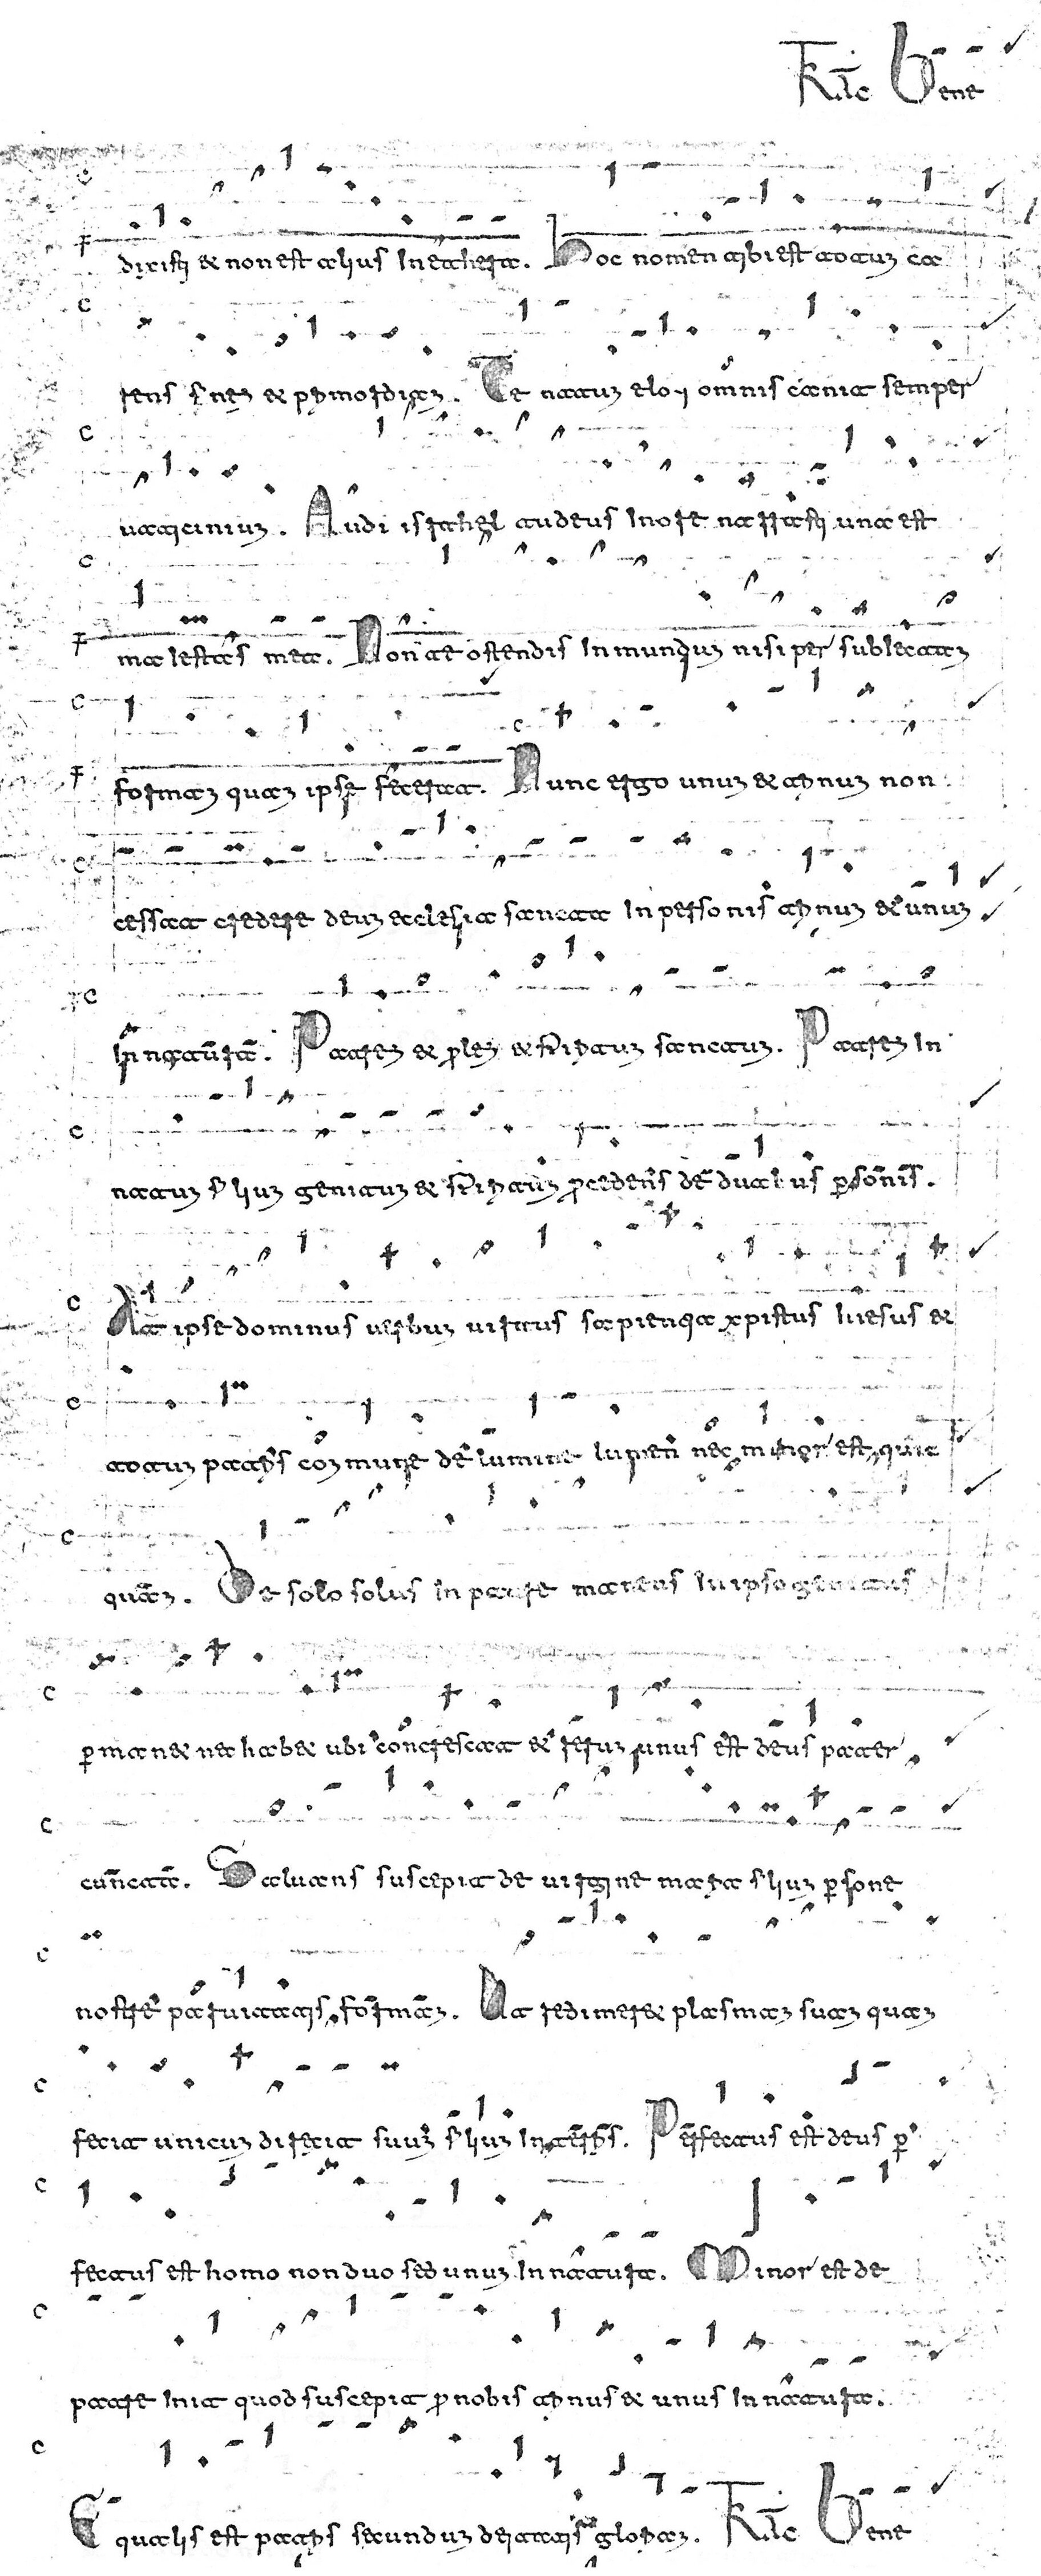 Bene
dixisti & non est alius In ethera. Hoc nomen tibi est totum ca
rens finem & primordium. Te natum eloy omnis canit semper
uaticinium. Audi israhel deus In ore narrasti una est
maiestas mea. Non te ostendis In mundum nisi per sublectam
formam quam ipse fecerat. Nunc ergo unum & trinum non
cessat credere deum ecclesia sancta In personis trinum & unum
In natura. Patrem & prolem & spiritum sanctum. Patrem In
natum filium genitum & spiritum procedens de duabus personis.
At ipse dominus uerbum uirtus sapientia xpistus Ihesus &
totum patris commune de lumine lumen nec minor est quic
quam. De solo solus In patre manens In ipso genitus
permanet nec habet ubi concrescat & rerum unus est deus pater
cuncta. Saluans suscepit de uirgine maria filium persone
nostre paruitatis formam. Ut redimeret plasmam suam quam
fecit unicum direxit suum filium In terris. Perfectus est deus per
fectus est homo non duo sed unum In natura. Minor est de
patre Init quod suscepit pro nobis trinus & unus In natura.
Equalis est patris secundum deitatis gloriam. Bene